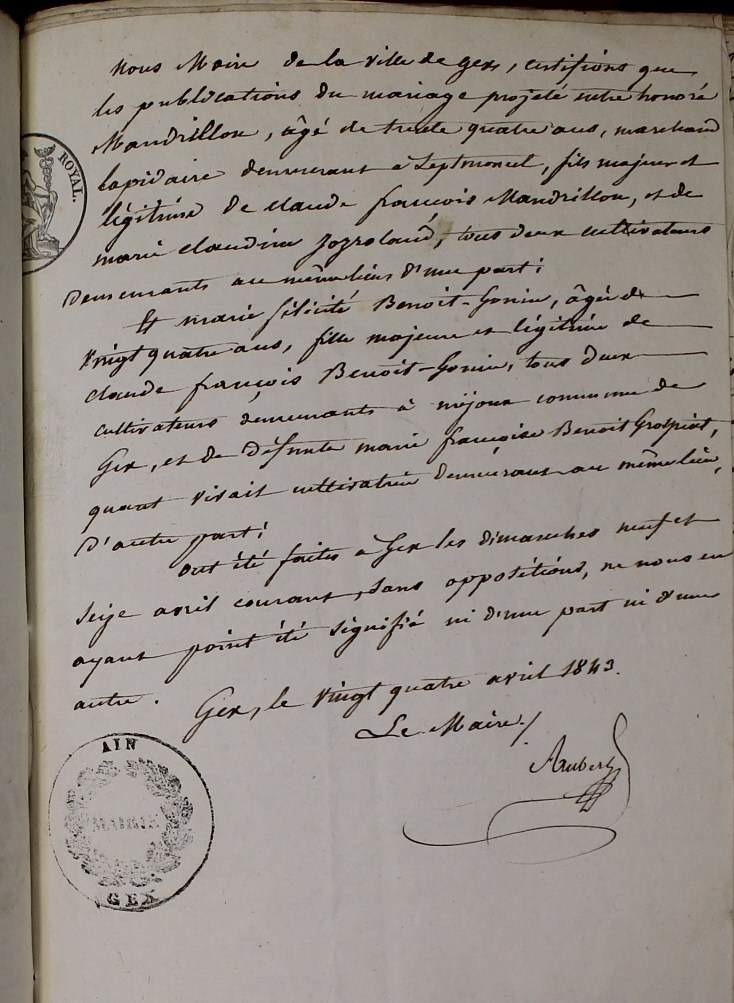 ROYAL.
Nous Maire de la ville de gex, certifions que
les publications du mariage projeté entre honoré
Mandrillon, âgé de trente quatre ans, marchand
lapidaire demeurant à Septmoncel, fils majeur et
légitime de claude françois Mandrillon, et de
marie claudine, tous deux cultivateurs
demeurants au même lieu d'une part;
Et marie félicité Benoit-Gonin, âgée de
vingt quatre ans, fille majeure et légitime de
claude françois Benoit-Gonin, tous deux
cultivateurs demeurants à mijoux commune de
Gex, et de défunte marie françoise Benoit Grospiot,
quant vivait cultivatrice demeurant au même lieu,
d'autre part;
ont été faites à Gex les dimanches neuf et
seize avril courant, sans oppositions, ne nous en
ayant point été signifié ni d'une part ni d'une
autre. Gex, le vingt quatre avril 1843.
Le Maire /
Aubert
AIN
MAIRIE
GEX